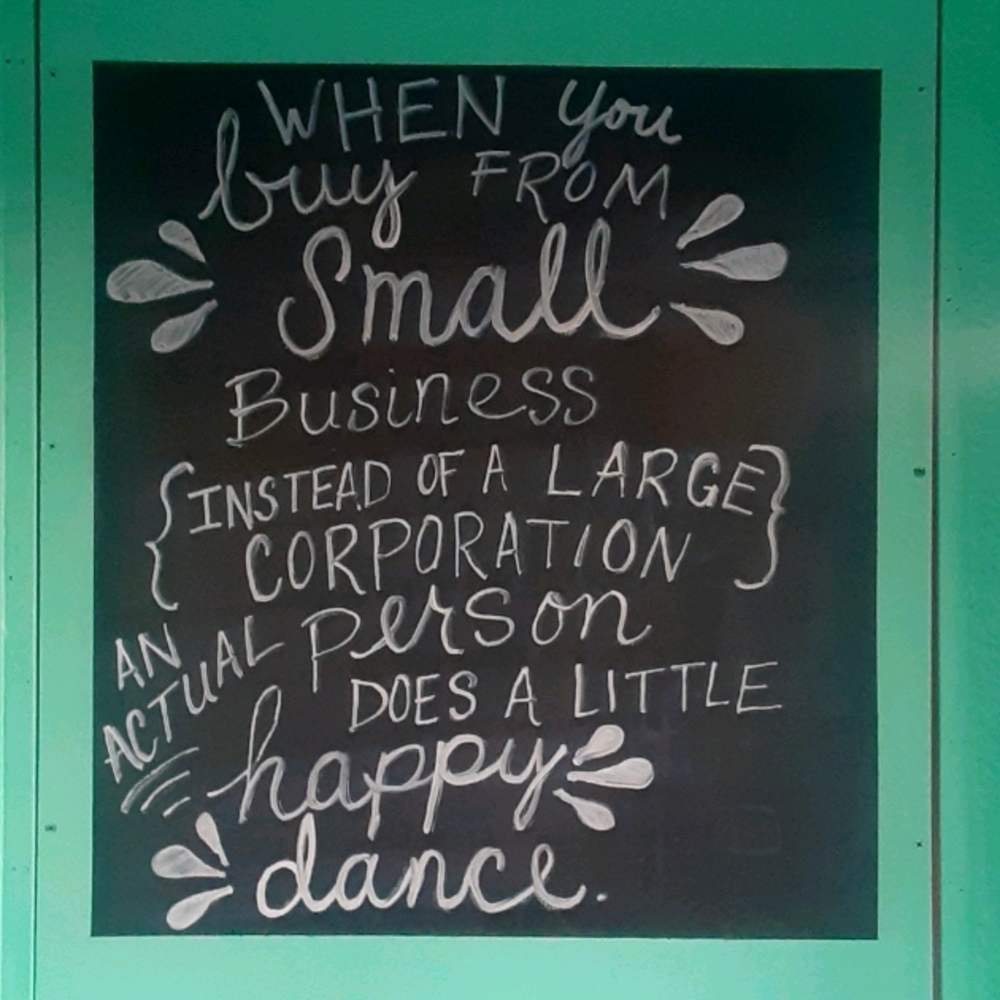 WHEN you
buy FROM
Small
Business
{INSTEAD OF A LARGE
CORPORATION}
AN ACTUAL person
DOES A LITTLE
happy
dance.